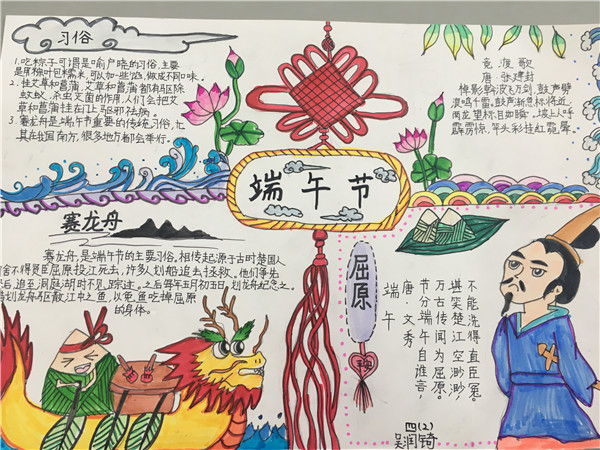 习俗
1.吃粽子可谓是家喻户晓的习俗,主要
是用粽叶包糯米,可以加一些馅,做成不同口味。
2.挂艾草和菖蒲,艾草和菖蒲都有驱除
蚊蚁,杀虫灭菌的作用,人们会把艾
草和菖蒲挂在门上驱邪祛病。
3.赛龙舟是端午节重要的传统习俗,尤
其在我国南方,很多地方都会举行。
竞渡歌
唐 张建封
棹影斡波飞万剑,鼓声劈
浪鸣千雷。鼓声渐急标将近,
两龙望标目如瞬。坡上人呼
霹雳惊,竿头彩挂虹霓晕
端午节
赛龙舟
赛龙舟,是端午节的主要习俗。相传起源于古时楚国人
舍不得贤臣屈原投江死去,许多人划船追去拯救。他们争先
后,追至洞庭湖时不见踪迹。之后每年五月初五日,划龙舟纪念之。
划龙舟驱散江中之鱼,以免鱼吃掉屈原
的身体。
屈原
端午
唐·文秀
节分端午自谁言,
万古传闻为屈原。
堪笑楚江空渺渺
不能洗得直臣冤。
四(2)